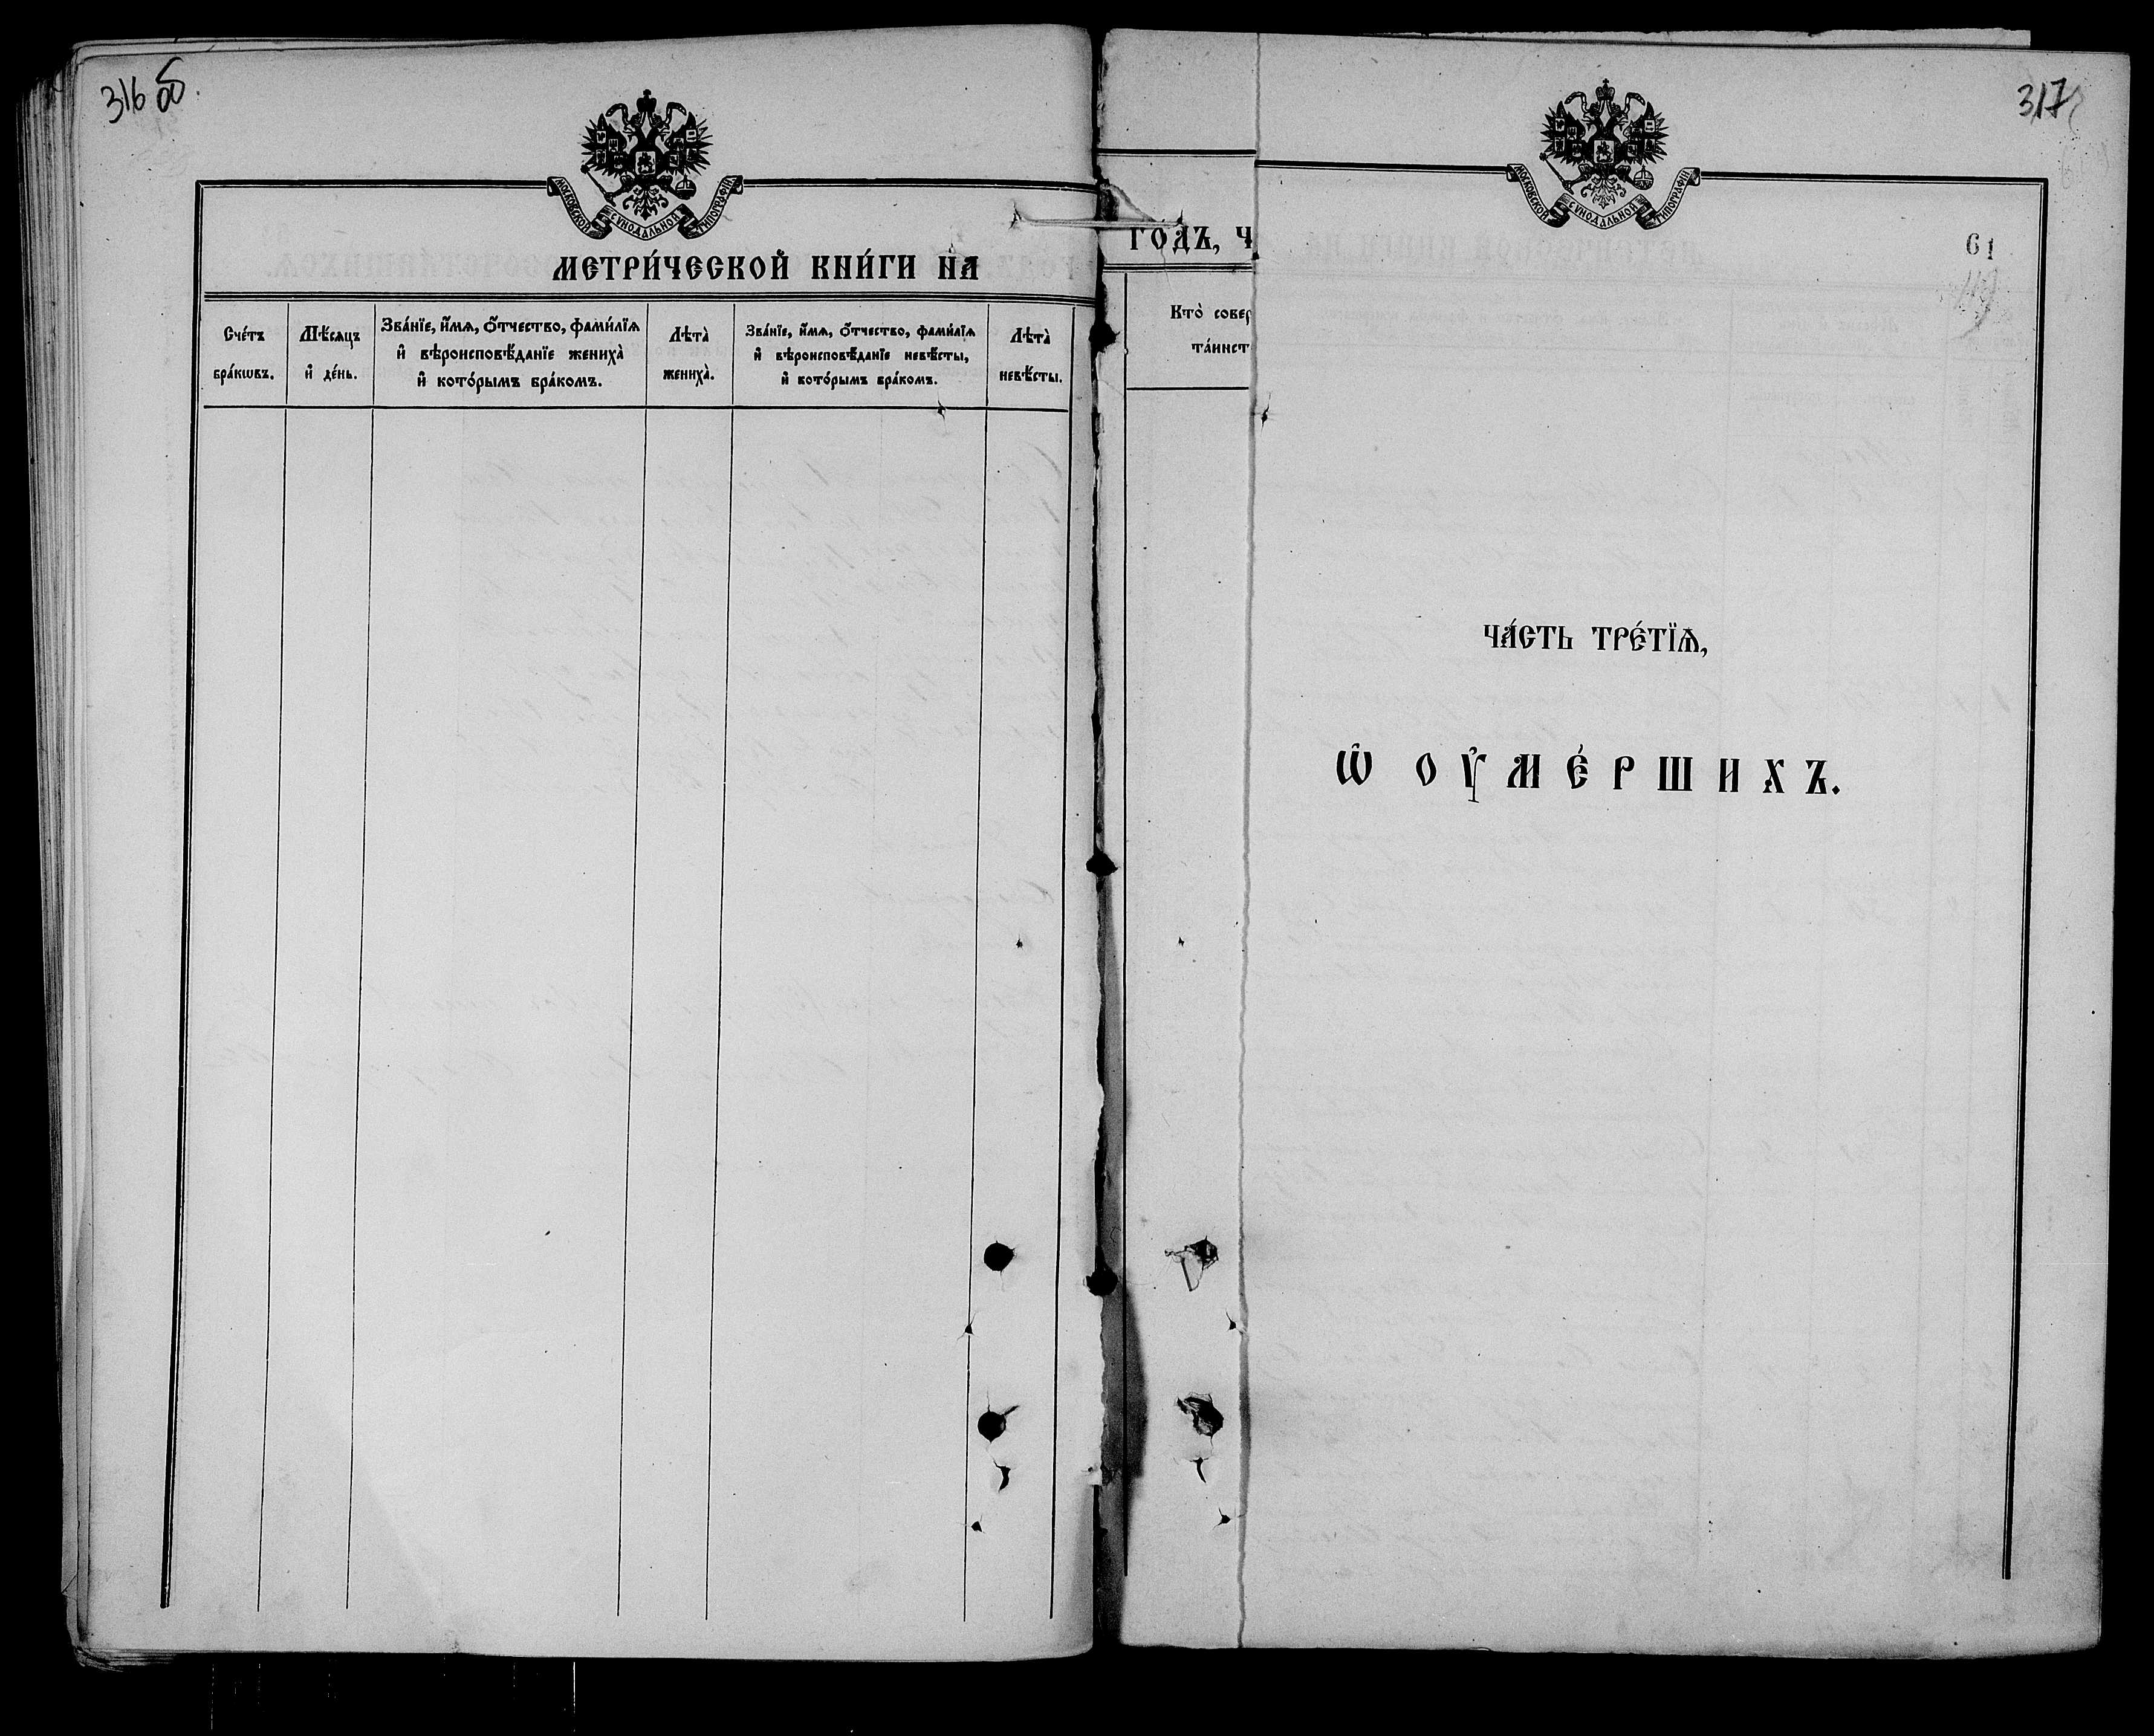 316 об.
МОСКОВСКОЙ СѴНОДАЛЬНОЙ ТИПОГРАФІИ
МЕТРИ́ЧЕСКОЙ КНИ́ГИ НА
Сче́тъ бра́кѡвъ.
Мѣ́сяцъ и де́нь.
Зва́нїе, и́мѧ, ѻ́тчество, фами́лїѧ
и҆ вѣроисповѣ́данїе жениха̀
и҆ кото́рымъ бра́комъ.
Лѣта̀ жениха̀.
Зва́нїе, и́мѧ, ѻ́тчество, фами́лїѧ
и҆ вѣроисповѣ́данїе невѣ́сты,
и҆ кото́рымъ бра́комъ.
Лѣта̀ невѣ́сты.
ГО́ДЪ, Ч
Кто̀ совер
та́инст
317
МОСКОВСКОЙ СѴНОДАЛЬНОЙ ТИПОГРАФІИ
61
ЧА́СТЬ ТРЕ́ТЇѦ,
Ѡ҆ ОУ҆МЕ́РШИХЪ.